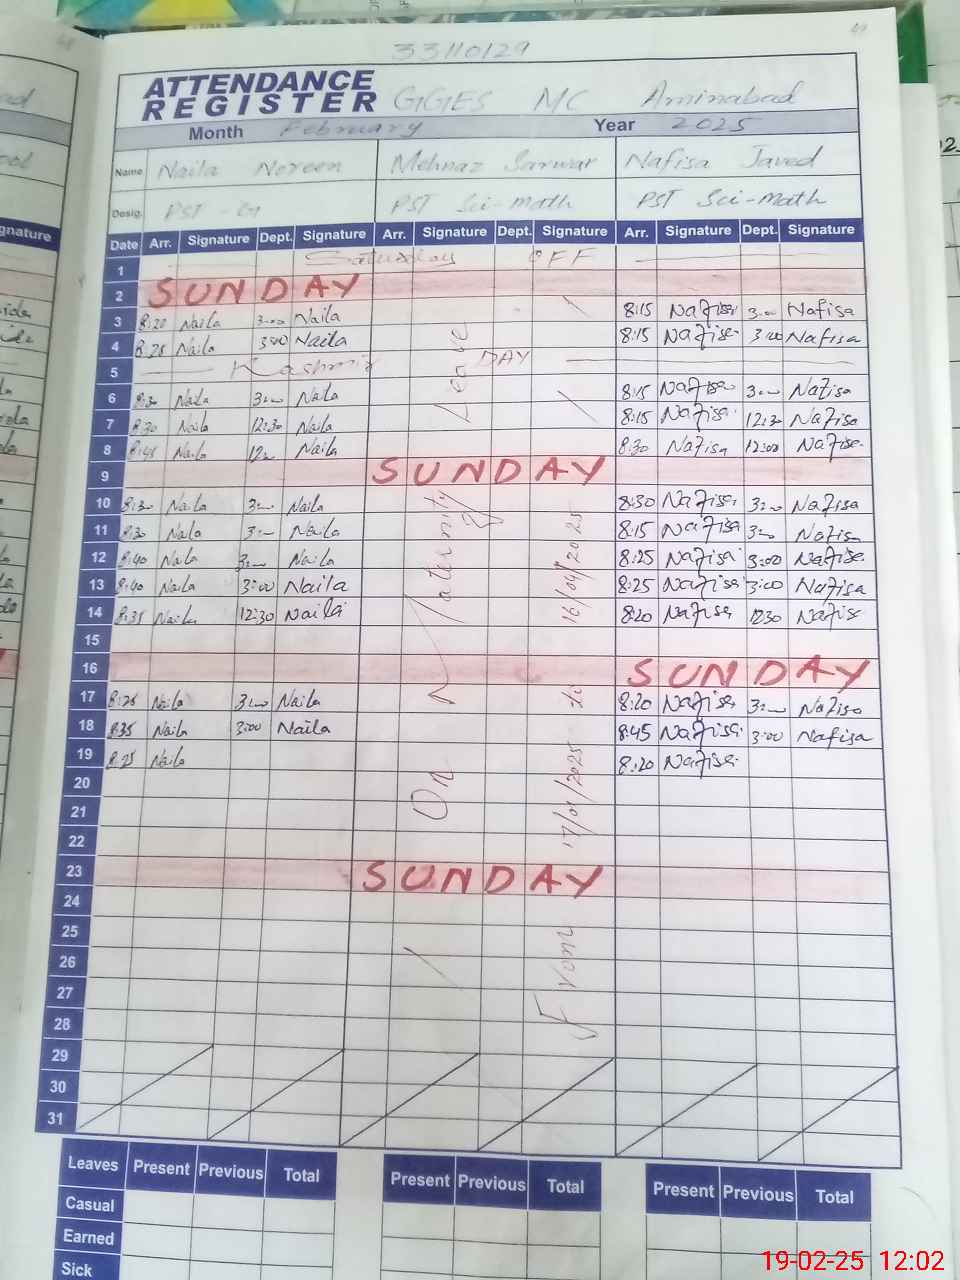 33110129
49
ATTENDANCE REGISTER GGES MC Aminabad
Month February Year 2025
Name Naila Noreen Mehnaz Sarwar Nafisa Javed
Desig. PST - G PST Sci-math PST Sci-math
Date Arr. Signature Dept. Signature Arr. Signature Dept. Signature Arr. Signature Dept. Signature
1 Saturday OFF
2 SUNDAY
3 8:20 Naila 3:00 Naila 8:15 Nafisa 3:00 Nafisa
4 8:25 Naila 3:00 Naila 8:15 Nafisa 3:00 Nafisa
5 Kashmir DAY
6 8:30 Naila 3:00 Naila 8:15 Nafisa 3:00 Nafisa
7 8:30 Naila 12:30 Naila 8:15 Nafisa 12:30 Nafisa
8 8:45 Naila 12:00 Naila 8:30 Nafisa 12:00 Nafisa
9 SUNDAY
10 8:30 Naila 3:00 Naila 8:30 Nafisa 3:00 Nafisa
11 8:30 Naila 3:00 Naila 8:15 Nafisa 3:00 Nafisa
12 8:40 Naila 3:00 Naila 8:25 Nafisa 3:00 Nafisa
13 8:40 Naila 3:00 Naila 8:25 Nafisa 3:00 Nafisa
14 8:35 Naila 12:30 Naila 8:20 Nafisa 12:30 Nafisa
15
16 SUNDAY
17 8:25 Naila 3:00 Naila 8:20 Nafisa 3:00 Nafisa
18 8:35 Naila 3:00 Naila 8:45 Nafisa 3:00 Nafisa
19 8:25 Naila 8:20 Nafisa
20
21
22
23 SUNDAY
24
25
26
27
28
29
30
31
On Maternity Leave
From 17/01/2025 to 16/04/2025
Leaves Present Previous Total Present Previous Total Present Previous Total
Casual
Earned
Sick
19-02-25 12:02